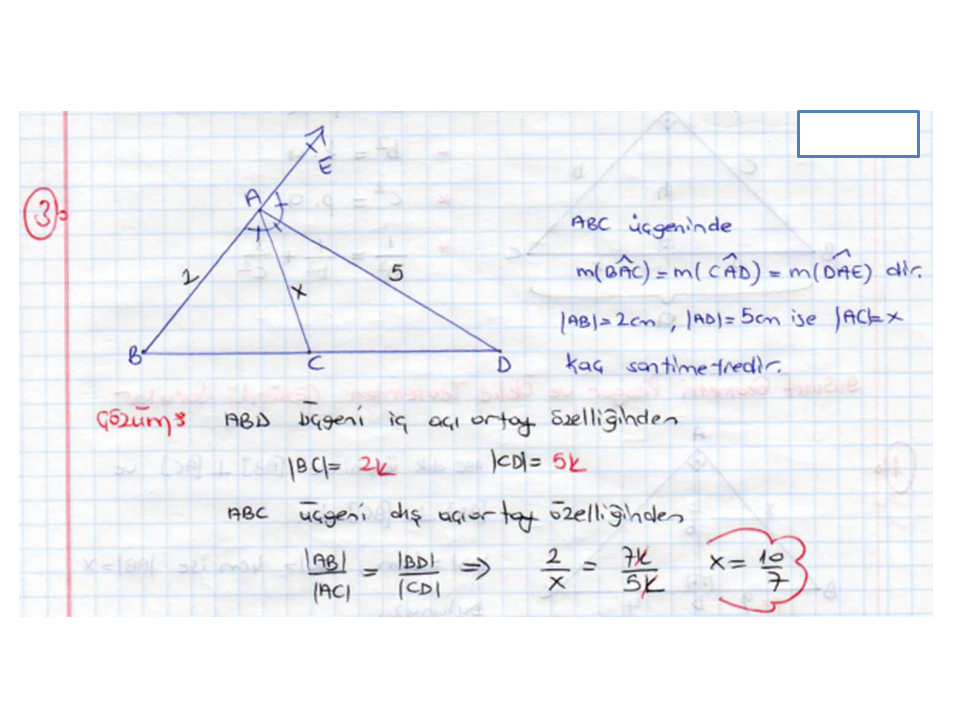 3
E
A
ABC üçgeninde
2
x
5
m(BAC) = m(CAD) = m(DAE) dir.
|AB|= 2cm , |AD|= 5cm ise |AC|= x
B
C
D
kaç santimetredir.
Çözüm:
ABD üçgeni iç açı ortay özelliğinden
|BC|= 2k |CD|= 5k
ABC üçgeni dış açıortay özelliğinden
|AB|/|AC| = |BD|/|CD| ⇒ 2/x = 7k/5k x = 10/7